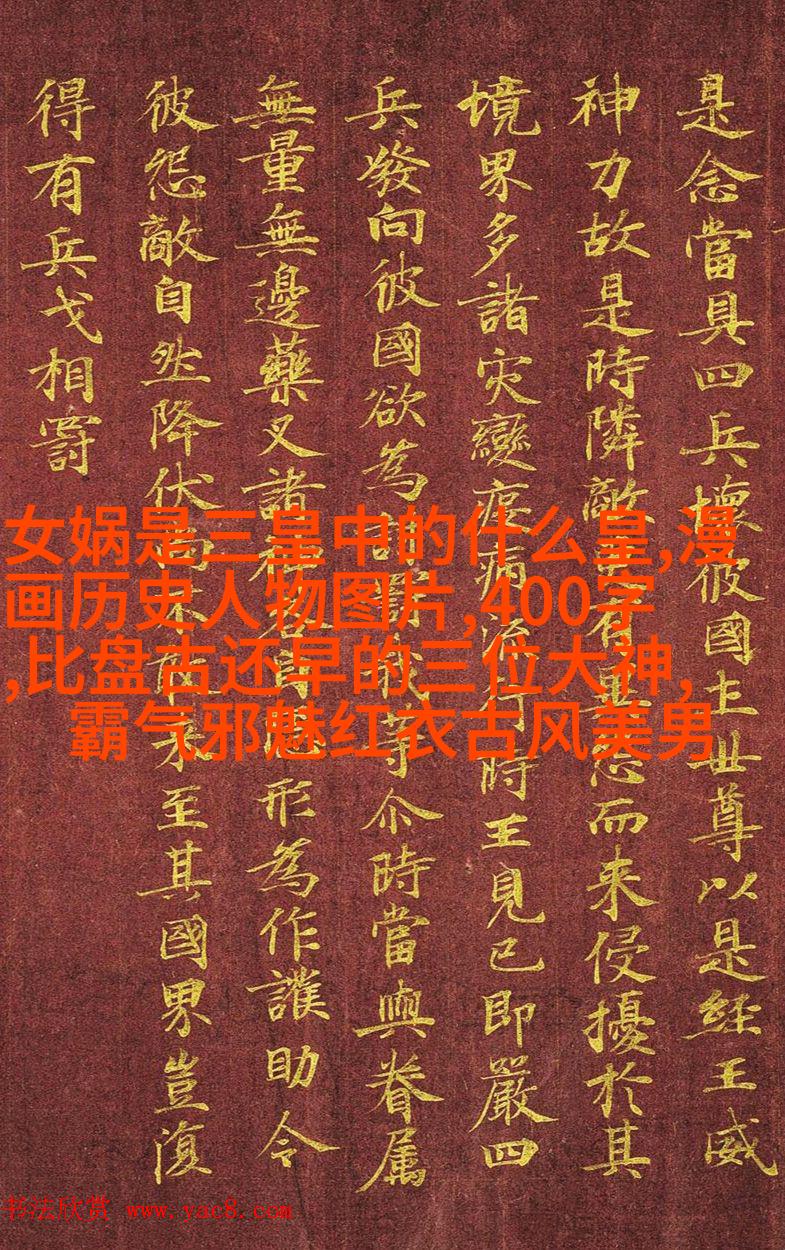 是念當具四兵壞彼國土世尊以是經王威
神力故是時隣敵更有異怨而来侵擾於其
境界多諸灾變疫病流行時王見已即嚴四
兵發向彼國欲為討罰我等尒時當與眷属
無量無邊藥叉諸神各自隱形為作護助令
彼怨敵自然降伏尚不敢来至其國界豈復
得有兵戈相罸
女娲是三皇中的什么皇,漫
画历史人物图片,400字
,比盘古还早的三位大神,
霸气邪魅红衣古风美男
书法欣赏 www.yac8.com